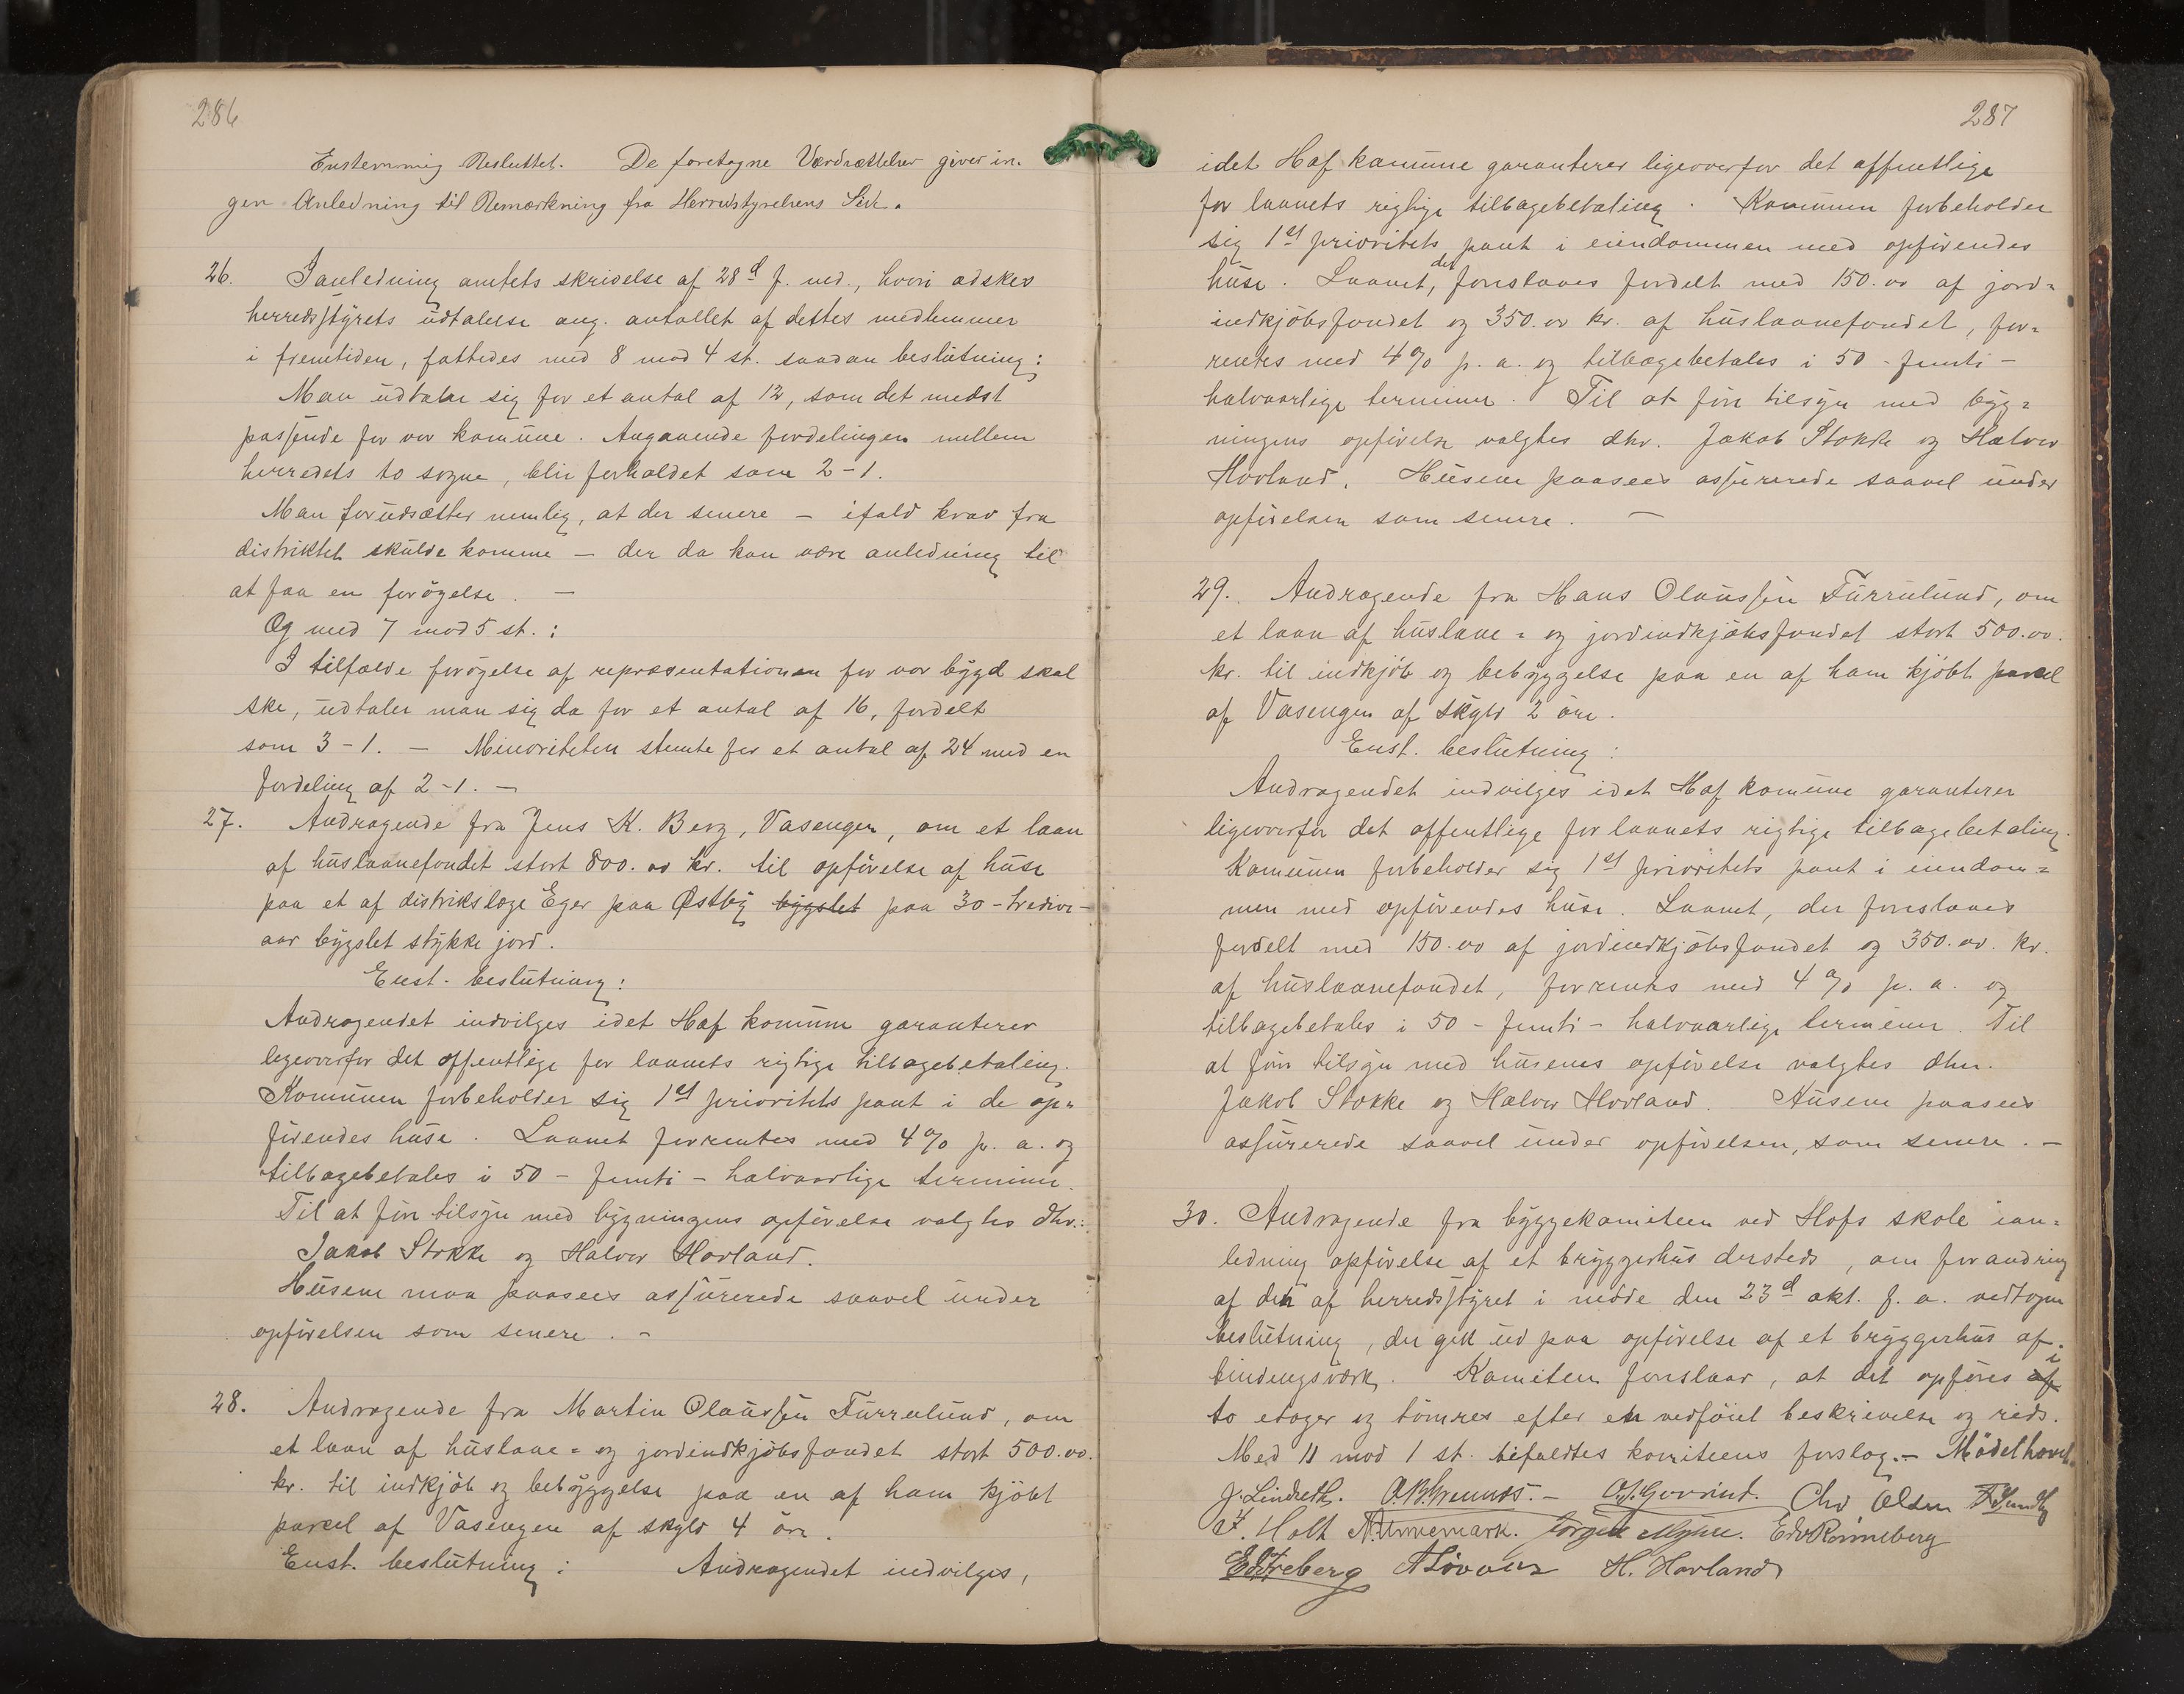 286
Enstemmig Besluttet. De foretagne Værdsættelser giver in-
gen Anledning til Bemærkning fra Herredstyrelsens Side.
26. I anledning amtets skrivelse af 28d f. md., hvori æskes
herredsstyrets udtalelse ang. antallet af dettes medlemmer
i fremtiden, fattedes med 8 mod 4 st. saadan beslutning:
Man udtaler sig for et antal af 12, som det mest
passende for vor komune. Angaaende fordelingen mellem
herredets to sogne, blir forholdet som 2-1.
Man forudsætter nemlig, at der senere – ifald krav fra
distriktet skulde komme – der da kan være anledning til
at faa en forøgelse. –
Og med 7 mod 5 st.:
I tilfælde forøgelse af repræsentationen for vor bygd skal
ske, udtaler man sig da for et antal af 16, fordelt
som 3-1. – Minoriteten stemte for et antal af 24 med en
fordeling af 2-1. –
27. Andragende fra Jens K. Berg, Vasengen, om et laan
af huslaanefondet stort 800.00 kr. til opførelse af huse
paa et af distrikslæge Eger paa Østby bygslet paa 30-tredive-
aar bygslet stykke jord.
Enst. beslutning:
Andragendet indvilges idet Hof komune garanterer
ligeoverfor det offentlige for laanets rigtige tilbagebetaling.
Komunen forbeholder sig 1st prioritets pant i de op-
førendes huse. Laanet forrentes med 4% p. a. og
tilbagebetales i 50 – femti – halvaarlige terminer.
Til at føre tilsyn med bygningens opførelse valgtes dhr.:
Jakob Stokke og Halvor Hovland.
Husene maa paasees assurerede saavel under
opførelsen som senere. –
28. Andragende fra Martin Olaussen Furrulund, om
et laan af huslaane- og jordindkjøbsfondet stort 500.00.
kr. til indkjøb og bebyggelse paa en af ham kjøbt
parcel af Vasengen af skyld 4 øre.
Enst. beslutning: Andragendet indvilges,
287
idet Hof komune garanterer ligeoverfor det offentlige
for laanets rigtige tilbagebetaling. Komunen forbeholder
sig 1st prioritets pant i eiendommen med opførendes
huse. Laanet, der foreslaaes fordelt med 150.00 af jord-
indkjøbsfondet og 350.00 kr. af huslaanefondet, for-
rentes med 4% p. a. og tilbagebetales i 50 – femti –
halvaarlige terminer. Til at føre tilsyn med byg-
ningens opførelse valgtes dhr. Jakob Stokke og Halvor
Hovland. Husene paasees assurerede saavel under
opførelsen som senere. –
29. Andragende fra Hans Olaussen Furrulund, om
et laan af huslaane- og jordindkjøbsfondet stort 500.00.
kr. til indkjøb og bebyggelse paa en af ham kjøbt parcel
af Vasengen af skyld 2 øre.
Enst. beslutning:
Andragendet indvilges idet Hof komune garanterer
ligeoverfor det offentlige for laanets rigtige tilbagebetaling.
Komunen forbeholder sig 1st prioritets pant i eiendom-
men med opførendes huse. Laanet, der foreslaaes
fordelt med 150.00 af jordindkjøbsfondet og 350.00. kr.
af huslaanefondet, forrentes med 4% p. a. og
tilbagebetales i 50 – femti – halvaarlige terminer. Til
at føre tilsyn med husenes opførelse valgtes dhr.
Jakob Stokke og Halvor Hovland. Husene paasees
assurerede saavel under opførelsen, som senere. –
30. Andragende fra byggekomiteen ved Hofs skole ian-
ledning opførelse af et bryggerhus dersteds, om forandring
af den af herredsstyret i møde den 23d okt. f. a. vedtagne
beslutning, der gik ud paa opførelse af et bryggerhus af
bindingsværk. Komiteen foreslaar, at det opføres af i
to etager og tømres efter en vedføiet beskrivelse og rids.
Med 11 mod 1 st. bifaldtes komiteens forslag. – Mødet hævet.
J. Lindseth. Chr Olsen F Sundby
Holt N. Unnemark. Jørgen Edv Rønneberg
H. Hovland